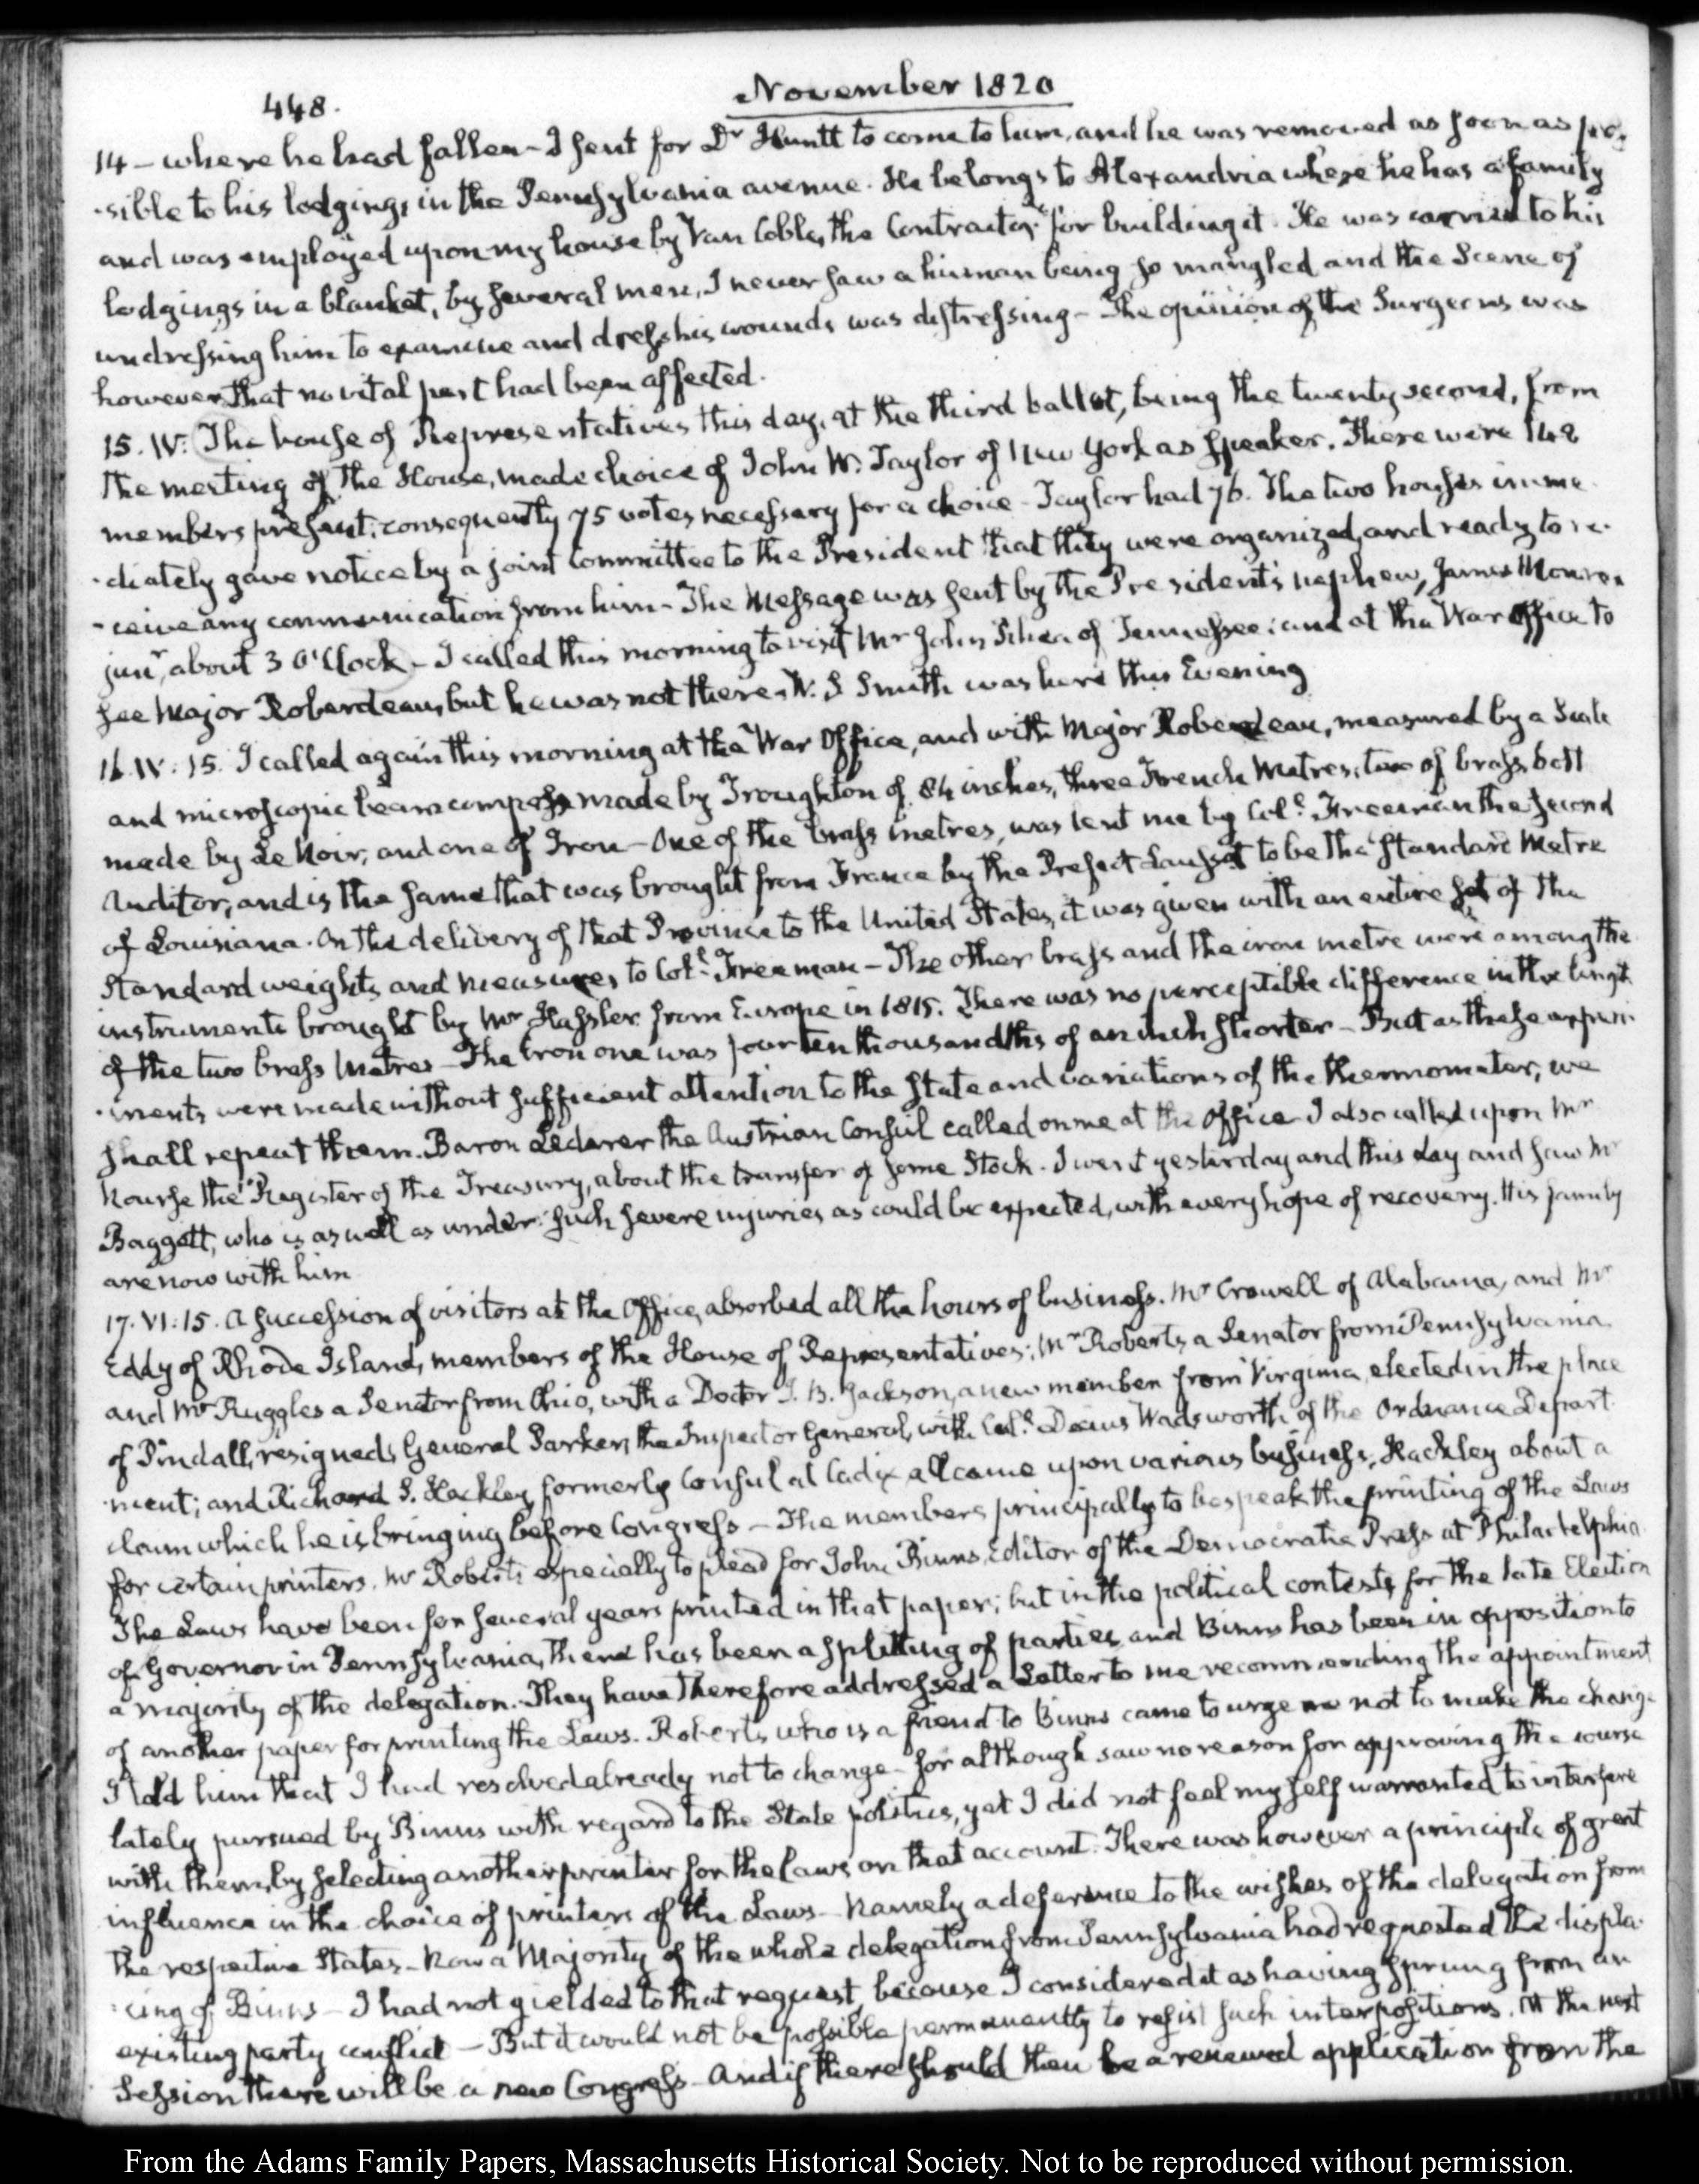 November 1820
448.
14 – where he had fallen – I sent for Dr Huntt to come to him, and he was removed as soon as pos-
-sible to his lodgings, in the Pennsylvania avenue. He belongs to Alexandria where he has a family
and was employed upon my house by Van Coble, the Contractor for building it. He was carried to his
lodgings in a blanket, by several men, I never saw a human being so mangled and the Scene of
undressing him to examine and dress his wounds was distressing – The opinion of the Surgeons was
however that no vital part had been affected.
15. IV: The house of Representatives this day, at the third ballot, being the twenty second, from
the meeting of the House, made choice of John W. Taylor of New York as Speaker. There were 148
members present: consequently 75 votes necessary for a choice – Taylor had 76. The two houses imme-
-diately gave notice by a joint Committee to the President that they were organized, and ready to re-
-ceive any communication from him – The Message was sent by the President's nephew, James Monroe
junr, about 3 O'Clock – I called this morning to visit Mr John Rhea of Tennessee: and at the War Office to
see Major Roberdeau, but he was not there. W. S. Smith was here this Evening
16. IV: 15. I called again this morning at the War Office, and with Major Roberdeau, measured by a Scale
and microscopic beam compass made by Troughton of 84 inches, three French Metres, two of brass both
made by Le Noir, and one of Iron – One of the brass metres, was lent me by Coll. Freeman the Second
Auditor, and is the same that was brought from France by the Prefect Laussat to be the Standard Metre
of Louisiana. On the delivery of that Province to the United States, it was given with an entire set of the
Standard weights and measures to Coll. Freeman – The other brass and the iron metre were among the
instruments brought by Mr Hassler from Europe in 1815. There was no perceptible difference in the length
of the two brass Metres – The iron one was four ten thousandths of an inch shorter – But as these experi-
-ments were made without sufficient attention to the state and variations of the thermometer, we
shall repeat them. Baron Lederer the Austrian Consul called on me at the Office. I also called upon Mr
Nourse the Register of the Treasury, about the transfer of some Stock. I went yesterday and this day and saw Mr
Baggott, who is as well as under such severe injuries as could be expected, with every hope of recovery. His family
are now with him
17. VI: 15. A succession of visitors at the Office, absorbed all the hours of business. Mr Crowell of Alabama, and Mr
Eddy of Rhode Island, members of the House of Representatives; Mr Roberts, a Senator from Pennsylvania,
and Mr Ruggles a Senator from Ohio, with a Doctor J. B. Jackson, a new member from Virginia, elected in the place
of Pindall, resigned, General Parker, the Inspector General, with Coll. Decius Wadsworth of the Ordnance Depart-
-ment; and Richard S. Hackley, formerly Consul at Cadiz all came upon various business, Hackley about a
claim which he is bringing before Congress – The members principally to bespeak the printing of the Laws
for certain printers. Mr Roberts especially to plead for John Binns, Editor of the Democratic Press at Philadelphia
The Laws have been for several years printed in that paper; but in the political contests for the late Election
of Governor in Pennsylvania, there has been a splitting of parties and Binns has been in opposition to
a majority of the delegation. They have therefore addressed a Letter to me recommending the appointment
of another paper for printing the Laws. Roberts, who is a friend to Binns came to urge me not to make the change
I told him that I had resolved already not to change – for although saw no reason for approving the course
lately pursued by Binns with regard to the State politics, yet I did not feel myself warranted to interfere
with them, by selecting another printer for the laws on that account. There was however a principle of great
influence in the choice of printers of the Laws – Namely a deference to the wishes of the delegation from
the respective States – Now a Majority of the whole delegation from Pennsylvania had requested the displa-
-cing of Binns – I had not yielded to that request, because I considered it as having sprung from an
existing party conflict – But it would not be possible permanently to resist such interpositions. At the next
Session there will be a new Congress – And if there should then be a renewed application from the
From the Adams Family Papers, Massachusetts Historical Society. Not to be reproduced without permission.